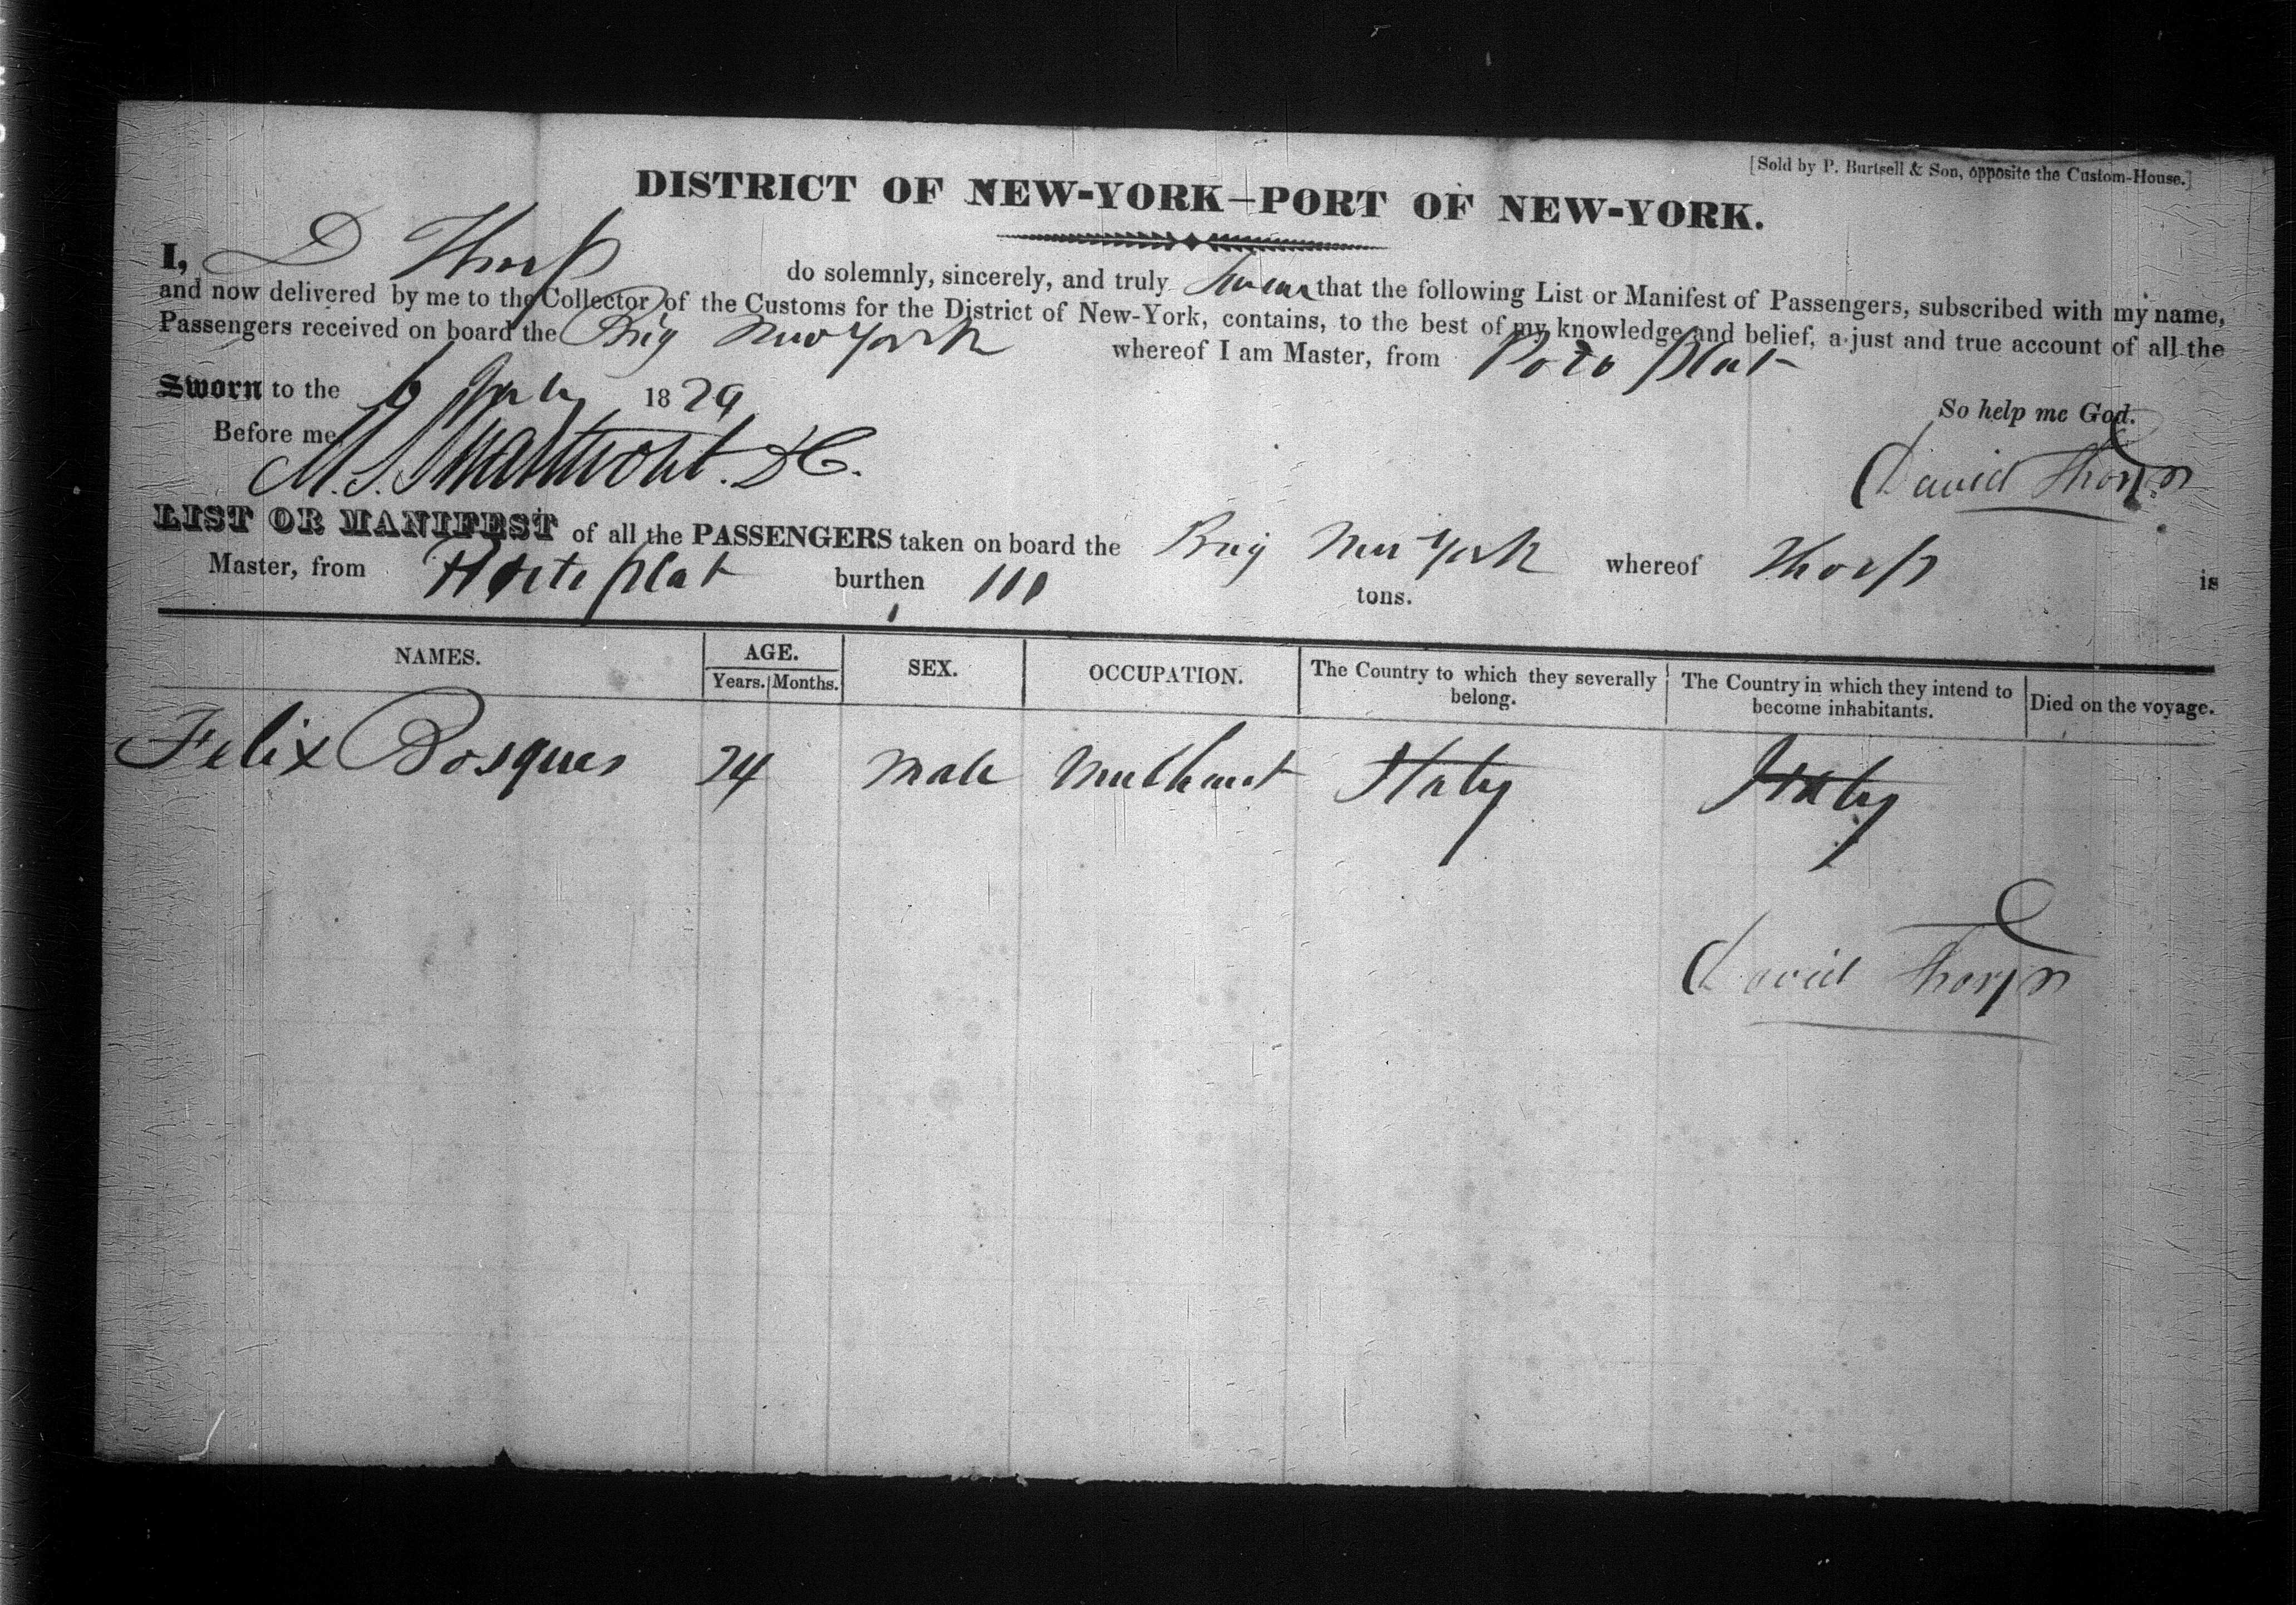 [Sold by P. Burtsell & Son, opposite the Custom-House.]
DISTRICT OF NEW-YORK—PORT OF NEW-YORK.
I, D Thorp do solemnly, sincerely, and truly swear that the following List or Manifest of Passengers, subscribed with my name,
and now delivered by me to the Collector of the Customs for the District of New-York, contains, to the best of my knowledge and belief, a just and true account of all the
Passengers received on board the Brig New York whereof I am Master, from Porto plat
Sworn to the 6 July 1829
So help me God.
Before me M. Swartwout. DC.
David Thorp
LIST OR MANIFEST of all the PASSENGERS taken on board the Brig New York whereof Thorp is
Master, from Porte plat burthen 111 tons.
NAMES. AGE. SEX. OCCUPATION. The Country to which they severally belong. The Country in which they intend to become inhabitants. Died on the voyage.
Years. Months.
Felix Bosques 24 Male Merchant Italy Italy
David Thorp